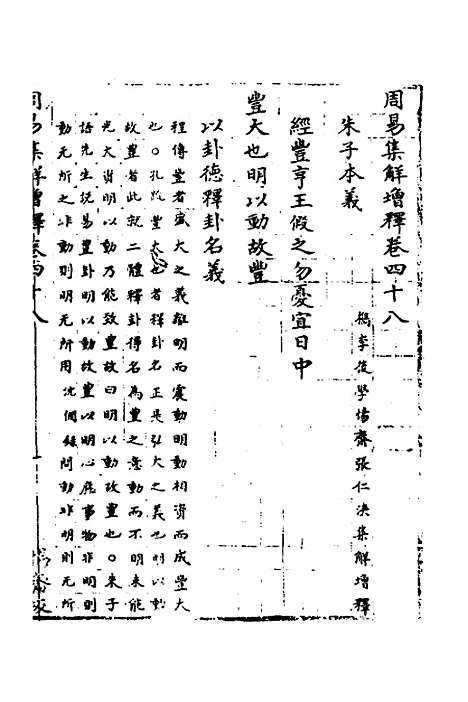 周易集解增釋卷四十八
檇李後學惕齋張仁浹集解增釋
朱子本義
經豐亨王假之勿憂宜日中
豐大也明以動故豐
以卦德釋卦名義
程傳豐者盛大之義離明而震動明動相資而成豐大
也○孔疏豐大也者釋卦名正是弘大之義也明以動
故豐者此就二體釋卦得名為豐之意動而不明未能
光大資明以動乃能致豐故曰明以動故豐也○朱子
語先生說易豐卦明以動故豐以明心應事物非明則
動无所之非動則明无所用沈僩錄問動非明則无所
周易集解增釋卷四十八